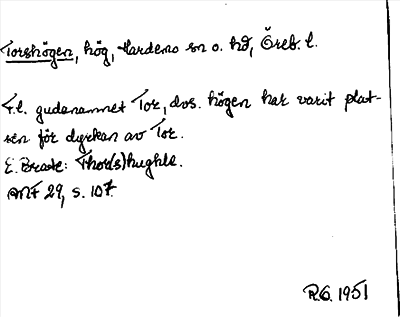 Torshögen, hög, Hardemo sn o. hd, Öreb. l.
T.l. gudanamnet Tor, dvs. högen har varit plat-
sen för dyrkan av Tor.
E. Brate: Thor(s)hughle.
ANF 29, s. 107.
R.G. 1951